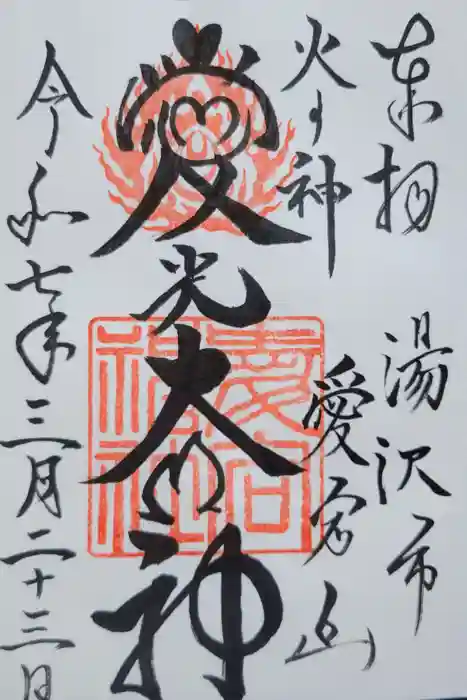 奉拝 湯沢市
火の神 愛宕山
愛光大神
令和七年三月二十三日
愛宕
神社